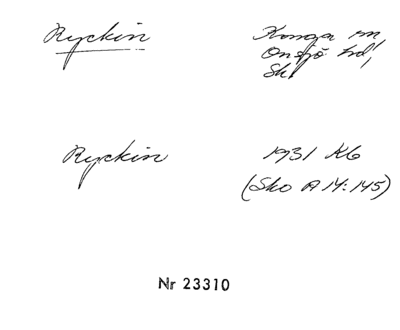 Ryckin
Konga sn,
Onsjö hd,
Sk
Ryckin
1931 K6
(Sko A 14:145)
Nr 23310